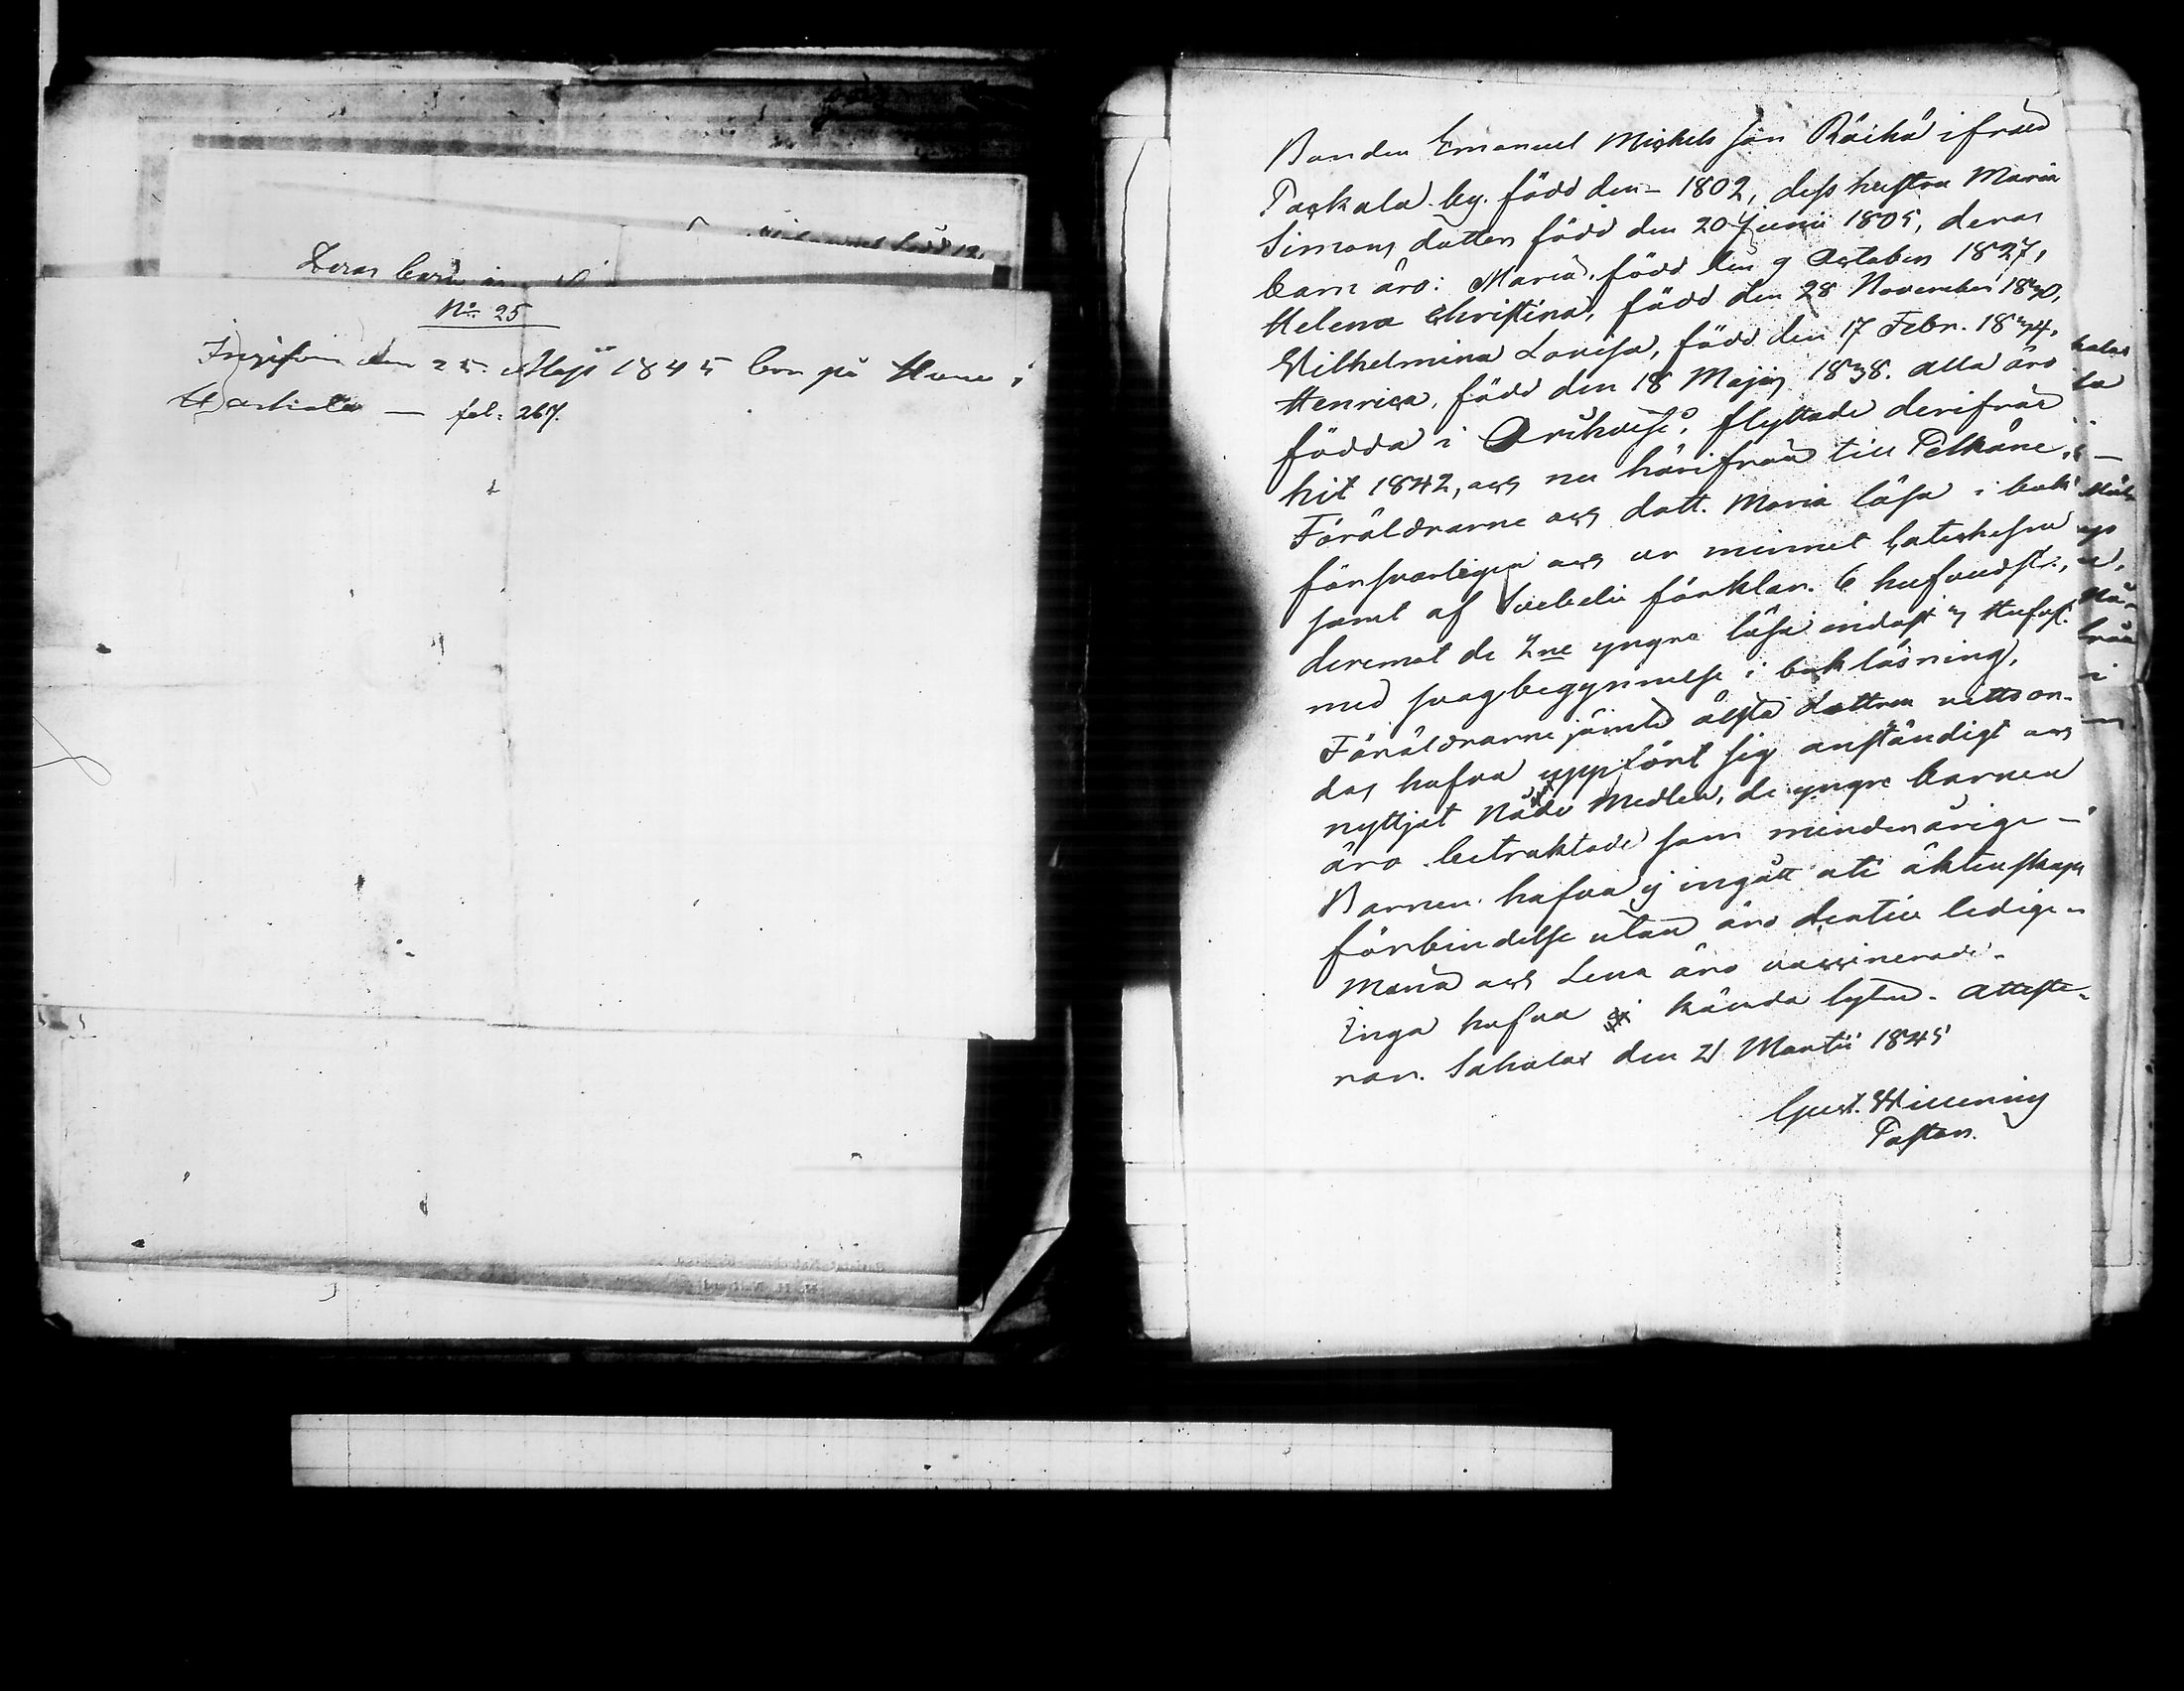 Deras barn
No. 25
den 25. Maji 1845 bor på i
— fol: 267.
Bonden Emanuel Michels son Räihä ifrån
Paskala by. född den – 1802, dess hustru Maria
Simons dotter född den 20 Junii 1805, deras
barn äro: Maria, född den 9 October 1827,
Helena Christina, född den 28 November 1830,
Wilhelmina Lovisa, född den 17 Febr. 1834,
Henrica, född den 18 Maji, 1838. alla äro
födda i Orihvesi, flyttade derifrån
hit 1842, och nu härifrån till Pelkäne.
Föräldrarne och dott. Maria läsa i bok
försvarligen och ur minnet catechesen
samt af Svebelii förklar. 6 hufvudst.,
deremot de 2ne yngre läsa endast 3 Hufvst.
med svag begynnelse i bokläsning.
Föräldrarne jämte älsta dottren
hafva uppfört sig anständigt och
nyttjat Nåde Medlen, de yngre barnen
äro betraktade som minderårige –
Barnen hafva ej ingått uti äktenskaps
förbindelse utan äro dertill ledige –
Maria och Lena äro vaccinerade –
Inga hafva kända lyten. Atteste-
rar. Sahalax den 21 Martii 1845
Gust. Winning
Pastor.